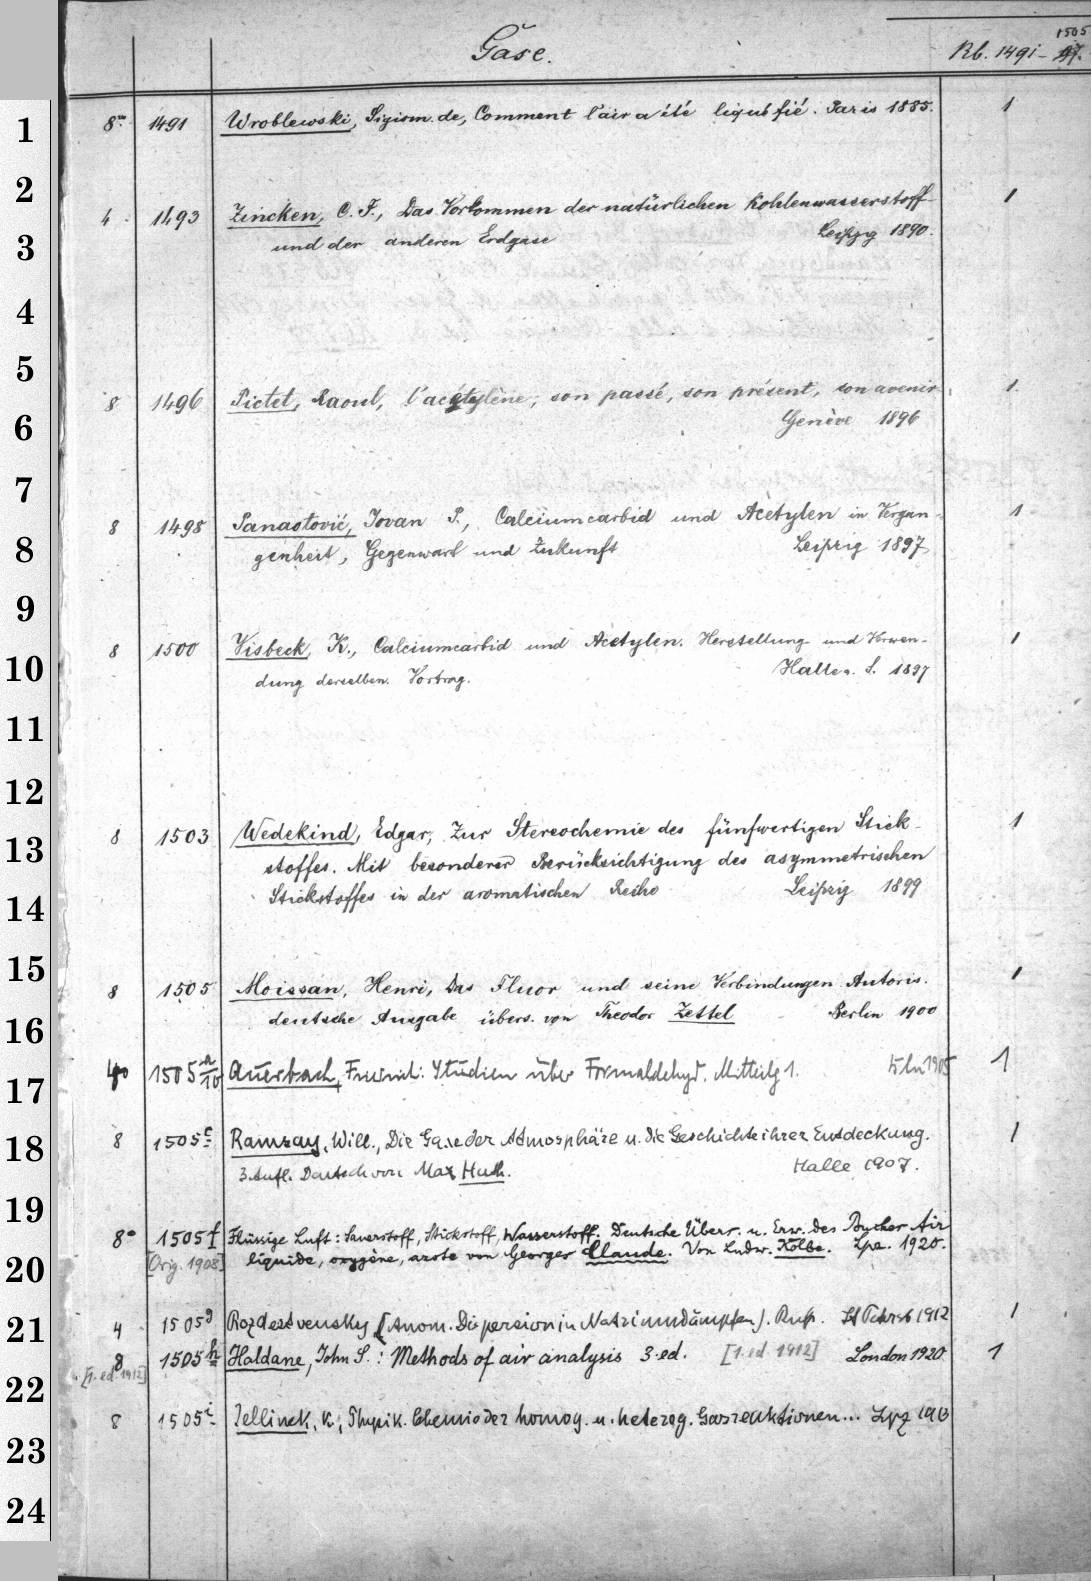 Gase.
Rb. 1491- 1505
1 8° 1491 Wroblewski, Sigism. de, Comment l'air a été liquéfié. Paris 1885. 1
2
4. 1493 Zincken, C. F., Das Vorkommen der natürlichen Kohlenwasserstoff- 1
3 und der anderen Erdgase Leipzig 1890.
4
5
8 1496 Pictet, Raoul, l'acétylène, son passé, son présent, son avenir 1.
6 Genève 1896
7
8 1498 Panaotović, Jovan P., Calciumcarbid und Acetylen in Vergan- 1
8 genheit, Gegenwart und Zukunft Leipzig 1897
9
8 1500 Visbeck, K., Calciumcarbid und Acetylen. Herstellung und Verwen- 1
10 dung derselben. Vortrag. Halle a. S. 1897
11
12
8 1503 Wedekind, Edgar, Zur Stereochemie des fünfwertigen Stick- 1
13 stoffes. Mit besonderer Berücksichtigung des asymmetrischen
14 Stickstoffes in der aromatischen Reihe Leipzig 1899
15
8 1505 Moissan, Henri, Das Fluor und seine Verbindungen. Autoris. 1
16 deutsche Ausgabe übers. von Theodor Zettel Berlin 1900
17 4° 1505 Auerbach, Studien über Formaldehyd. Mitteilg 1. 1905 1
18 8 1505c Ramsay, Will., Die Gase der Atmosphäre u. die Geschichte ihrer Entdeckung. 1
3. Aufl. Deutsch von Max Huth. Halle 1907.
19
8° 1505f Flüssige Luft: Sauerstoff, Stickstoff, Wasserstoff. Deutsche Übers. u. Erw. des Bucher Air
20 [Orig. 1908] liquide, oxygène, azote von Georges Claude. Von Ludw. Kolbe. Lpz. 1920.
21 4 1505g Rozdestvensky, [Anom. Dispersion in Natriumdämpfen]. Russ. St Petersb 1912 1
8 1505h Haldane, John S.: Methods of air analysis 3. ed. [1. ed. 1912] London 1920. 1
22 [1. ed. 1912]
8 1505i Jellinek, K., Physik. Chemie der homog. u. heterog. Gasreaktionen... Lpz 1913
23
24